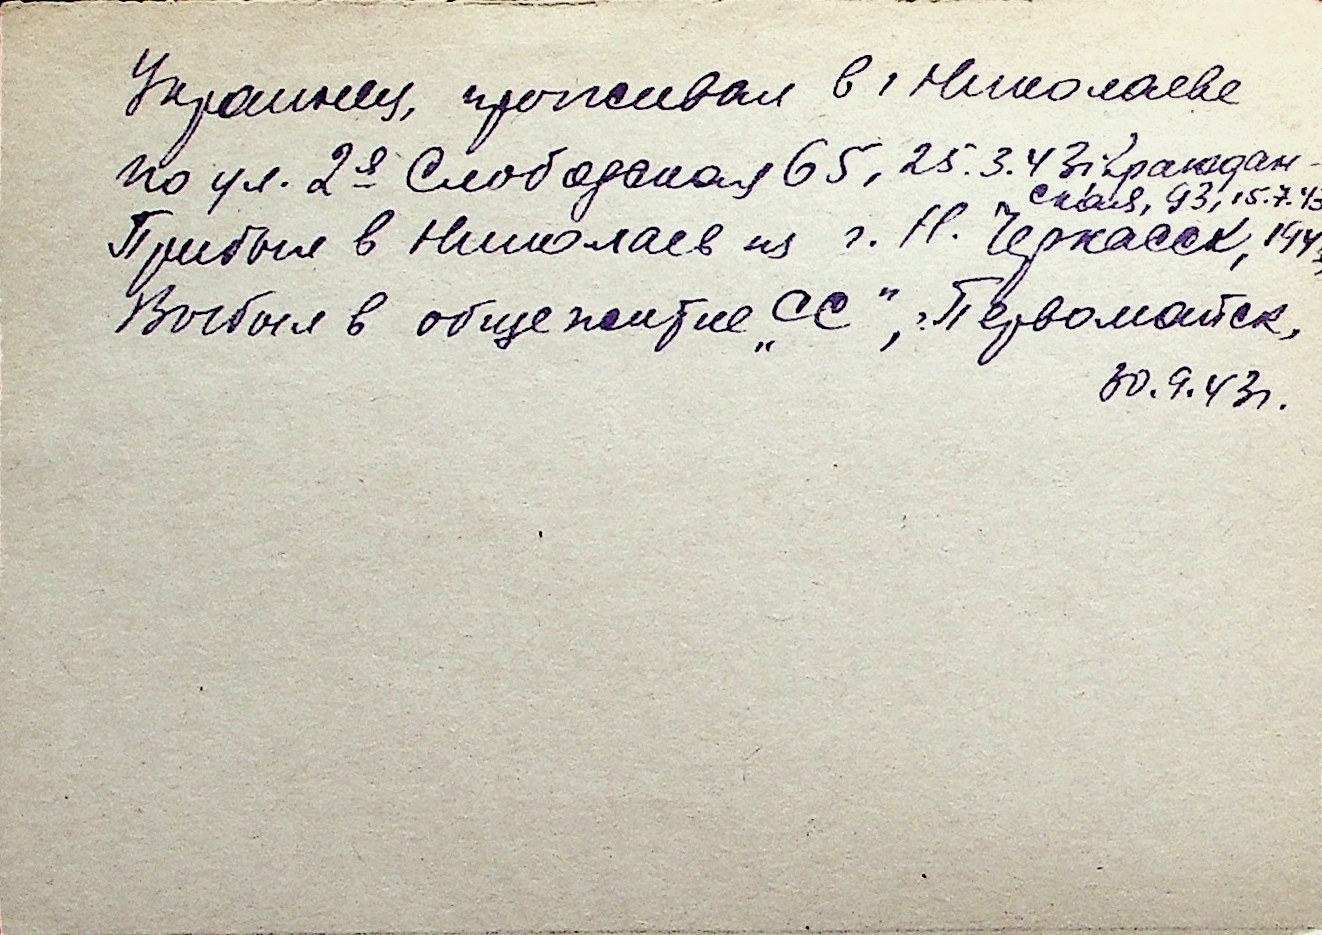 Украинец, проживал в г Николаеве
по ул. 2я Слободская 65, 25.3.43г Граждан-
ская, 93, 15.7.43
Прибыл в Николаев из г. Н. Черкасск,
Выбыл в общежитие „СС", г. Первомайск,
30.9.43г.